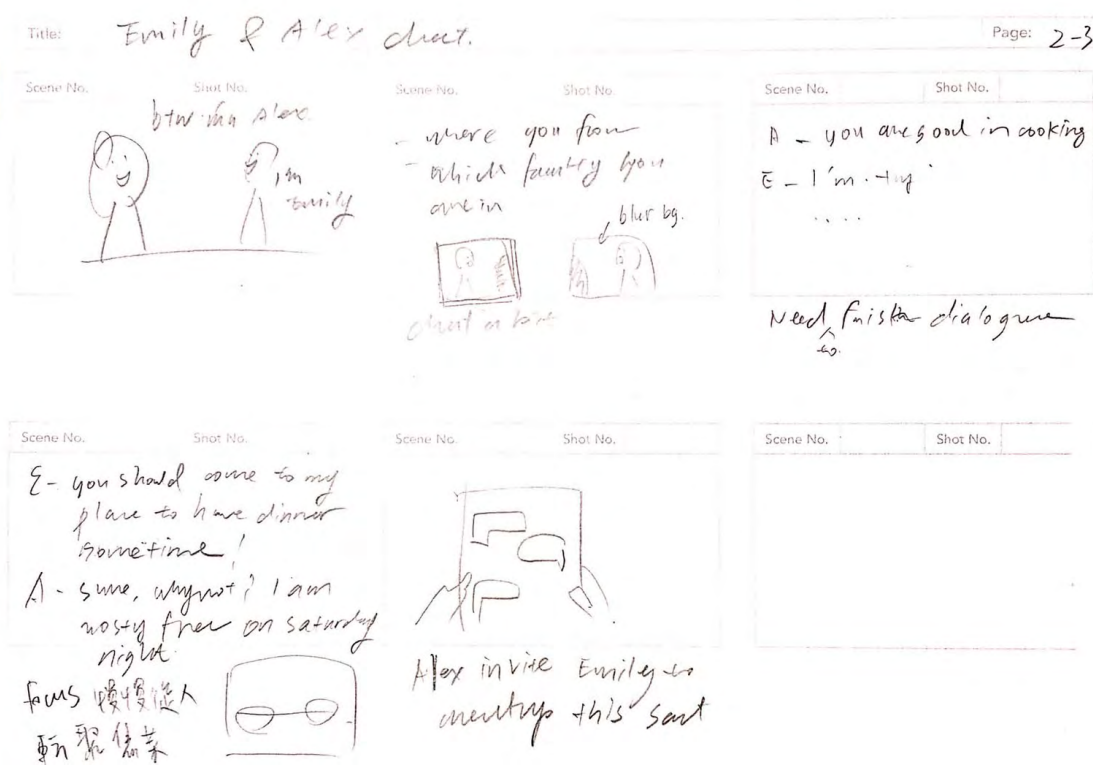 Title: Emily & Alex chat.
Page: 2-3
Scene No. Shot No.
btw im Alex.
im
Emily
Scene No. Shot No.
- where you from
- which you
are in
blur bg.
chat a bit
Scene No. Shot No.
A - you are good in cooking
E - I'm
....
Need to finish dialogue
Scene No. Shot No.
E - you should come to my
place to have dinner
sometime!
A - sure, why not? I am
mosty free on saturday
night.
focus 慢慢從人
Scene No. Shot No.
Alex invite Emily to
meetup this
Scene No. Shot No.